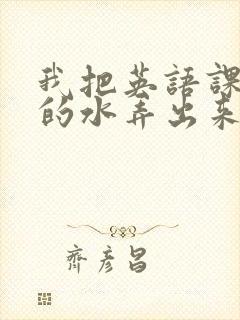 我把英語課
的水弄出來
齊彦昌